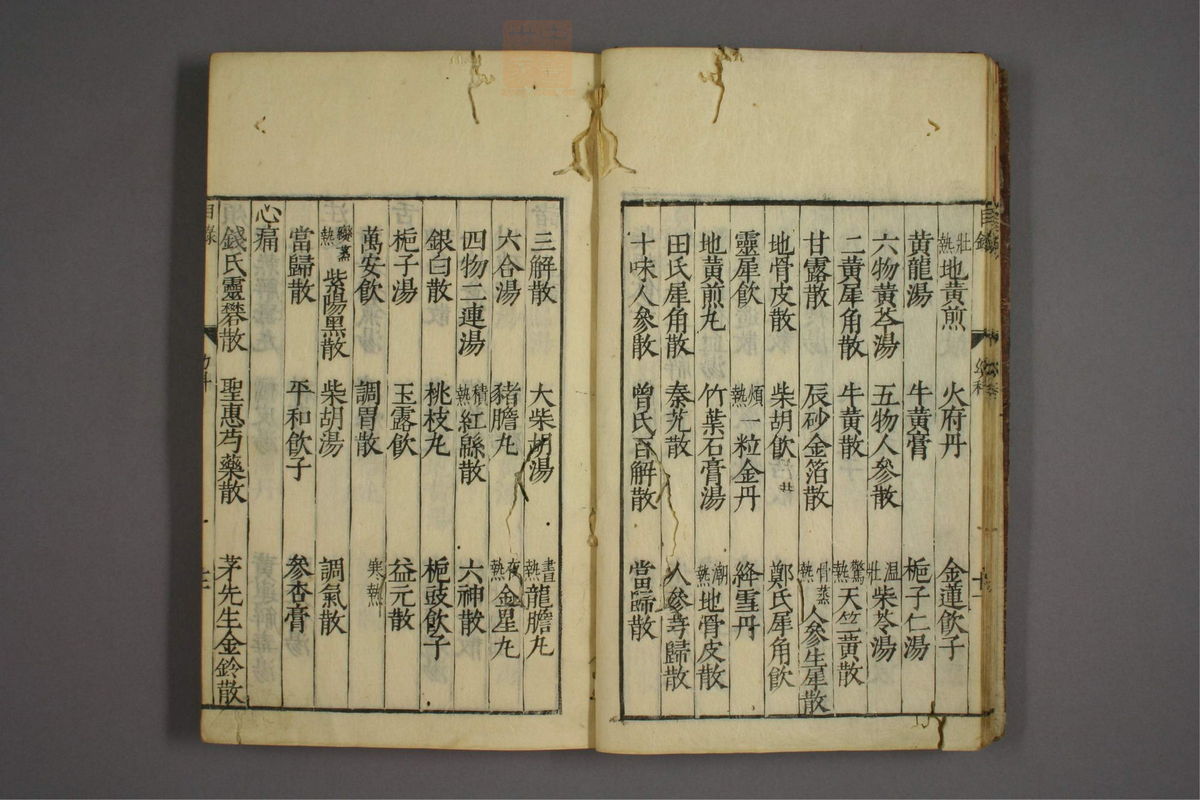 目錄
壯熱 地黃煎 火府丹 金蓮飲子
黃龍湯 牛黃膏 梔子仁湯
六物黃芩湯 五物人參散 温壯 柴苓湯
二黃犀角散 牛黃散 驚熱 天竺黃散
甘露散 辰砂金箔散 骨蒸熱 人參生犀散
地骨皮散 柴胡飲 鄭氏犀角飲
靈犀飲 煩熱 一粒金丹 絳雪丹
地黃煎丸 竹葉石膏湯 潮熱 地骨皮散
田氏犀角散 秦艽散 人參當歸散
十味人參散 曾氏百解散 當歸散
三解散 大柴胡湯 晝熱 龍膽丸
六合湯 豬膽丸 夜熱 金星丸
四物二連湯 積熱 紅緜散 六神散
銀白散 桃枝丸 梔豉飲子
梔子湯 玉露飲 益元散
萬安飲 調胃散 寒熱
變蒸熱 紫陽黑散 柴胡湯 調氣散
當歸散 平和飲子 參杏膏
心痛
錢氏靈礬散 聖惠芍藥散 茅先生金鈴散
目錄 幼科